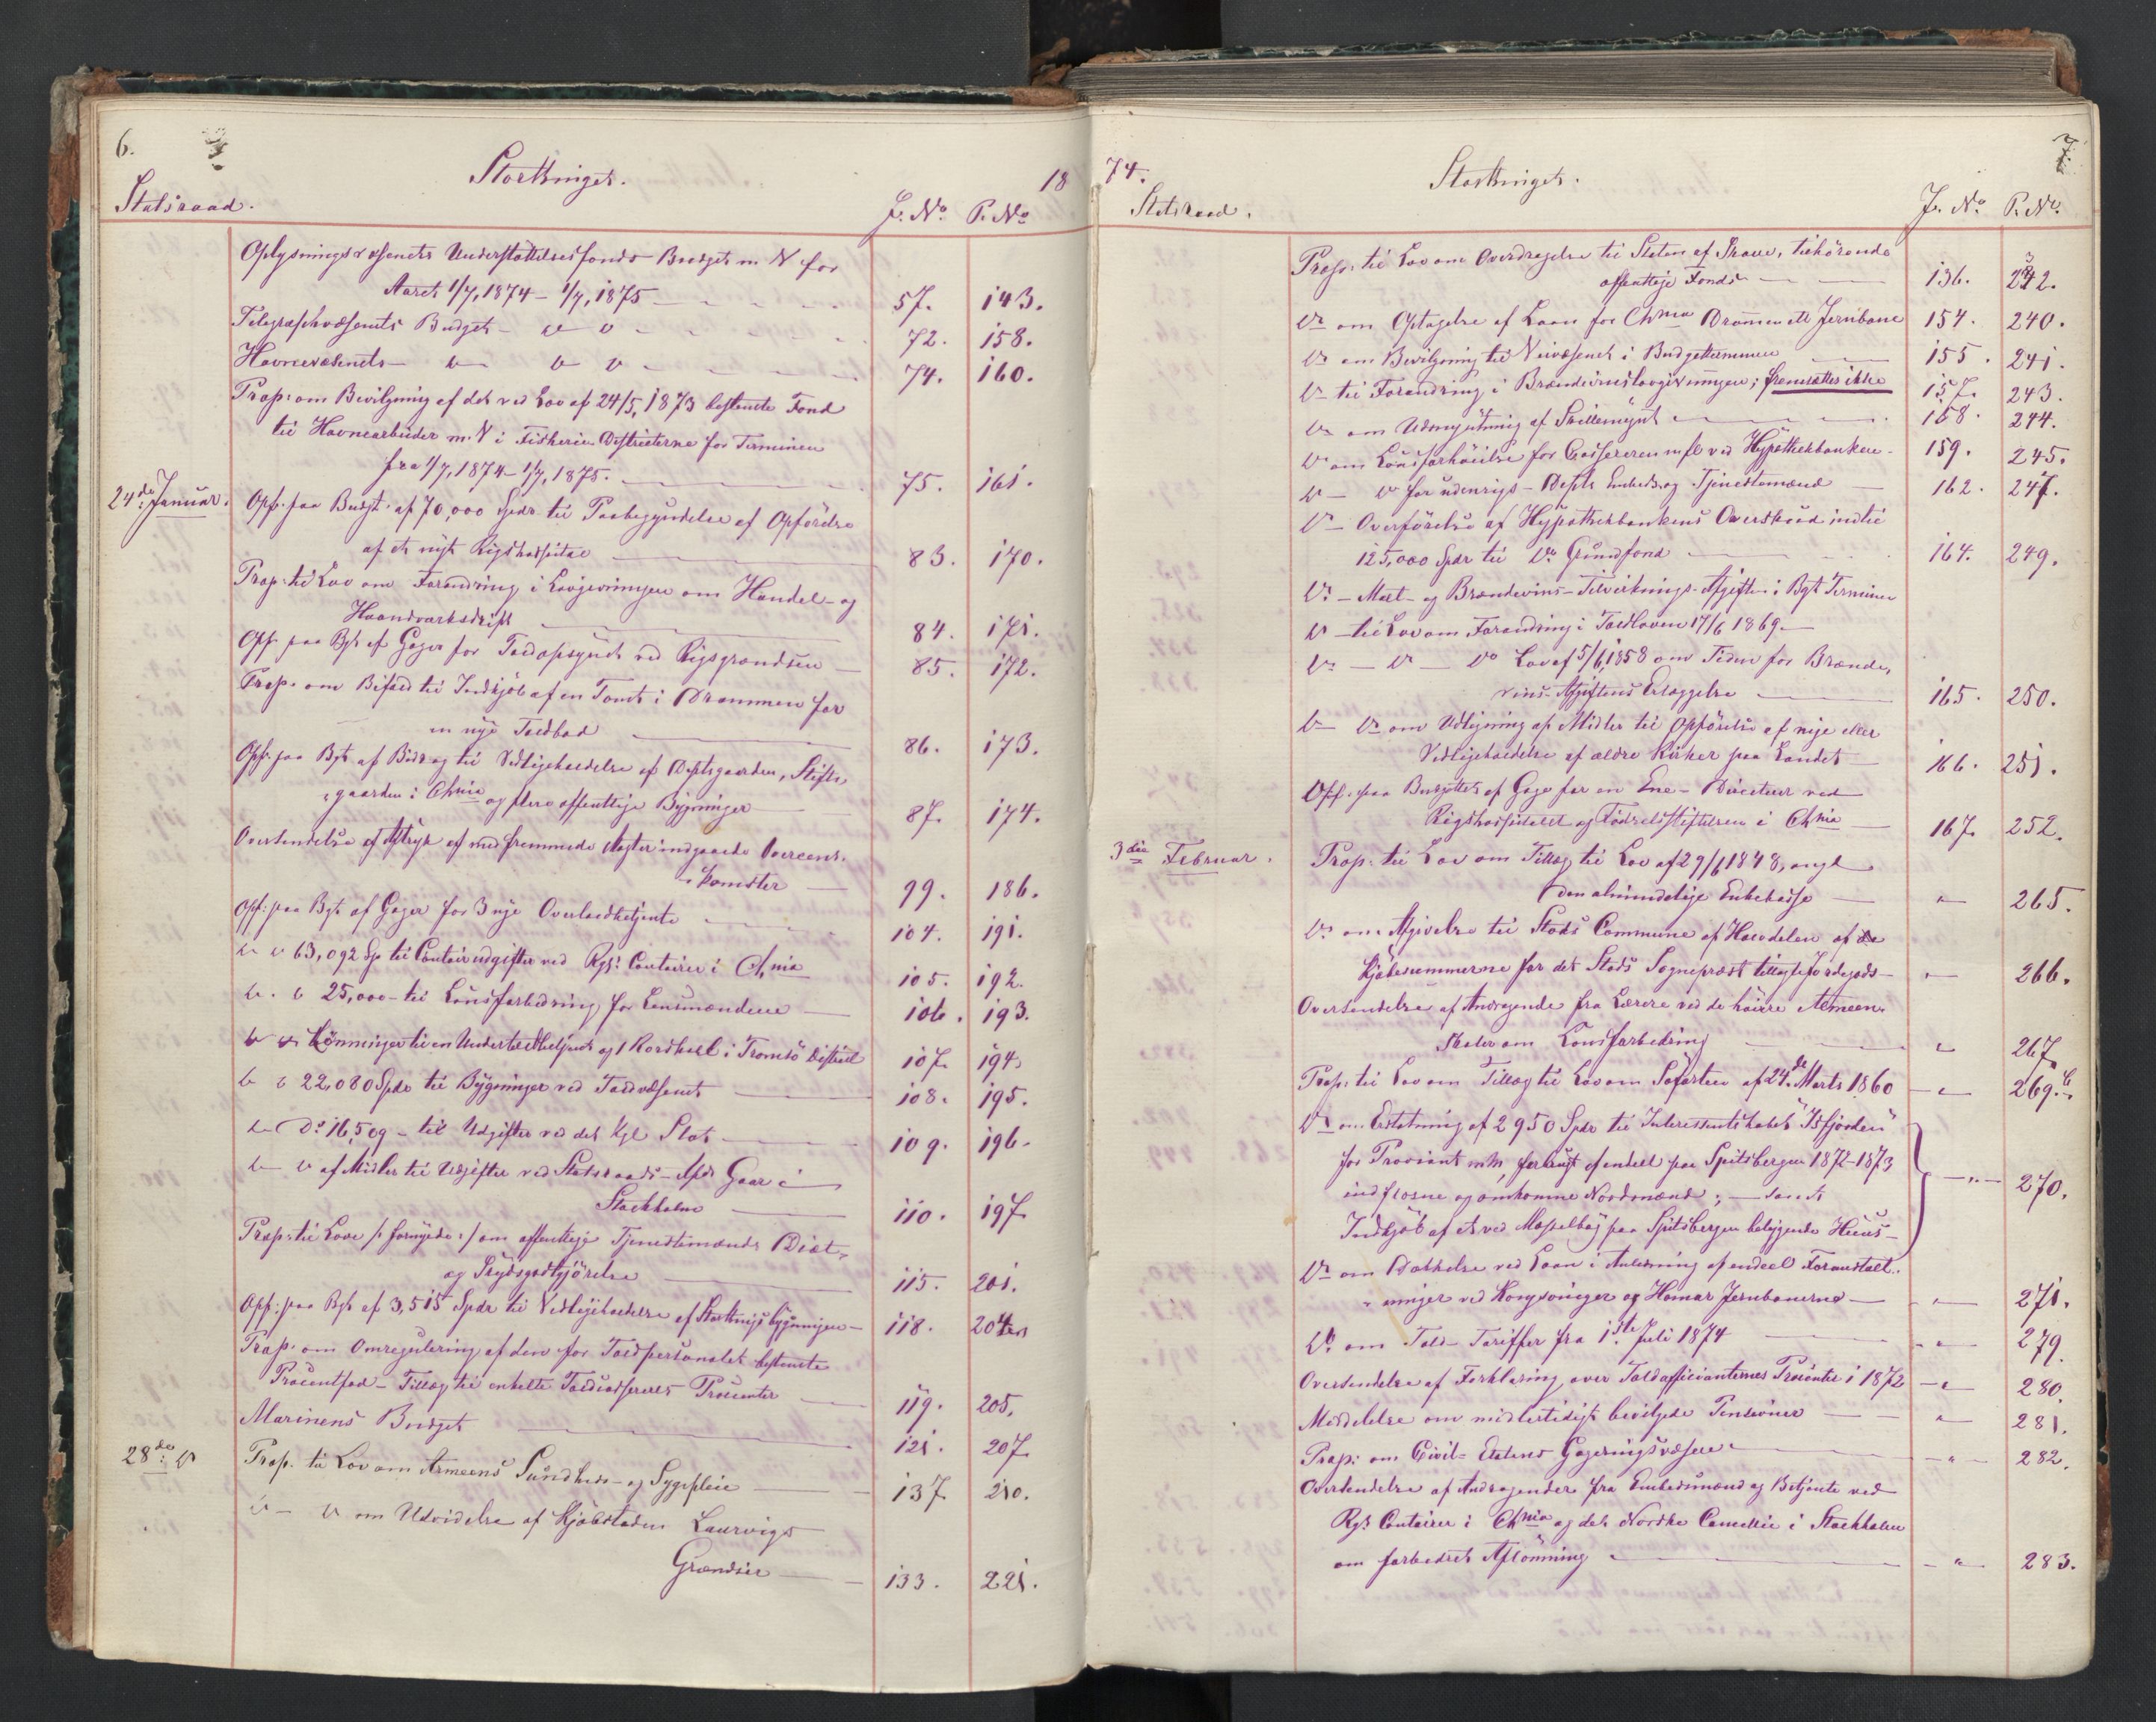 6.
Storthinget.
18
Statsraad.
J. No. P. No.
Oplysningsvæsenets Understøttelsesfonds Budget m. V for
Aaret 1/7, 1874 - 1/7, 1875 57. 143.
Telegraphvæsenets Budget 72. 158.
Havnevæsenets 74. 160.
Prop: om Bevilgning af det ved Lov af 24/5, 1873 bestemte Fond
til Havnearbeider m. V i Fiskeri Districterne for Terminen
fra 1/7, 1874 - 1/7, 1875. 75. 161.
24de Januar. Opf. paa Budgt. af 70,000 Spdr. til Paabegyndelse af Opførelse
af et nyt Rigshospital 83. 170.
Prop: til Lov om Forandring i Lovgivningen om Handel- og
Haandværksdrift 84. 171.
Opf. paa Bgt. af Gager for Toldopsynet ved Rigsgrændsen 85. 172.
Prop. om Bifald til Indkjøb af en Tomt i Drammen for
en nye Toldbod 86. 173.
Opf: paa Bgt. af Bidrag til Vedligeholdelse af Deptsgaarden, Stifts-
gaarden i Chnia og flere offentlige Bygninger 87. 174.
Oversendelse af Aftryk af med fremmede Magter indgaaede Overeens-
komster 99. 186.
Opf: paa Bgt. af Gager for 3 nye Overtoldbetjente 104. 191.
63,092 Sp til Contoirudgifter ved Rgs: Contoirer i Chnia 105. 192.
25,000 - til Lønsforbedring for Lensmændene 106. 193.
Lønninger til en Undertoldbetjent og 1 Rorskarl i Tromsø District 107. 194.
22,080 Spdr til Bygninger ved Toldvæsenet 108. 195.
Do 16,509 - til Udgifter ved det Kgl Slot 109. 196.
af Midler til Udgifter ved Statsraads-Afds Gaar i
Stockholm 110. 197
Prop: til Love /: fornyede :/ om offentlige Tjenestemænds Diæt-
og Skydsgodtgjørelse 115. 201.
Opf: paa Bgt af 3,515 Spdr til Vedligeholdelse af Storthingsbygningen 118. 204
Prop. om Omregulering af den for Toldpersonalet bestemte
Procentfod - Tillæg til enkelte Toldcassereres Procenter 119. 205.
Marinens Budget 121. 207
28de Prop. til Lov om Armeens Sundheds- og Sygepleie 137 210.
om Udvidelse af Kjøbstaden Laurvigs
Grændser 133. 221.
74.
7.
Storthinget.
Statsraad.
J. No. P. No.
Prop: til Lov om Overdragelse til Staten af Skove, tilhørende
offentlige Fonds 136. 242.
Do om Optagelse af Laan for Chnia Drammen Jernbane 154. 240.
Do om Bevilgning til Veivæsenet i Budgetterminen 155. 241.
Do til Forandring i Brændeviinslovgivningen; fremsættes ikke 157. 243.
Do om Udmyntning af Skillemynt 158. 244.
Do om Lønsforhøielse for Cassereren mfl ved Hypothekbanken 159. 245.
for udenrigs-Depts Embeds og Tjenestemænd 162. 247.
Do - Overførelse af Hypothekbankens Overskud indtil
125,000 Spdr til Do. Grundfond 164. 249.
Do - Malt- og Brændeviins-Tilvirknings-Afgiften i Bgt Terminen
Do - til Lov om Forandring i Toldloven 17/6 1869
Do Lov af 5/6 1858 om Tiden for Brænde-
viins-Afgiftens Erlæggelse 165. 250.
Do om Udligning af Midler til Opførelse af nye eller
Vedligeholdelse af ældre Kirker paa Landet 166. 251.
Opf: paa Budgettet af Gage for en Ene-Directeur ved
Rigshospitalet og Fødselsstiftelsen i Chnia 167. 252.
3die Februar. Prop: til Lov om Tillæg til Lov af 29/6 1848, angl
den almindelige Enkekasse 265.
Do om Afgivelse til Stods Commune af Halvdelen af de
Kjøbesummerne for det Stods Sognepræst tillagte Jordegods 266.
Oversendelse af Andragende fra Lærere ved de høiere Almeen-
skoler om Lønsforbedring 267
Prop: til Lov om Tillæg til Lov om Søfarten af 24de Marts 1860 269.b
Do om Erstatning af 2950 Spdr til Interessentskabet "Isfjorden"
for Proviant m.m., forbrugt af endeel paa Spitsbergen 1872-1873
indfrosne og omkomne Nordmænd; - samt
Indkjøb af et ved Mosselbay paa Spitsbergen beliggende Huus - 270.
Do om Dækkelse ved Laan i Anledning af endeel Foranstalt-
ninger ved Kongsvinger og Hamar Jernbanerne 271.
Do om Told-Tariffer fra 1ste Juli 1874 279.
Oversendelse af Forklaring over Toldofficianternes Procenter i 1872 280.
Meddelelse om midlertidigt bevilgede Pensioner 281.
Prop: om Civil-Etatens Gageringsvæsen 282.
Oversendelse af Andragender fra Embedsmænd og Betjente ved
Rgs Contoirer i Chnia og det Norske Cancellie i Stockholm
om forbedret Aflønning 283.